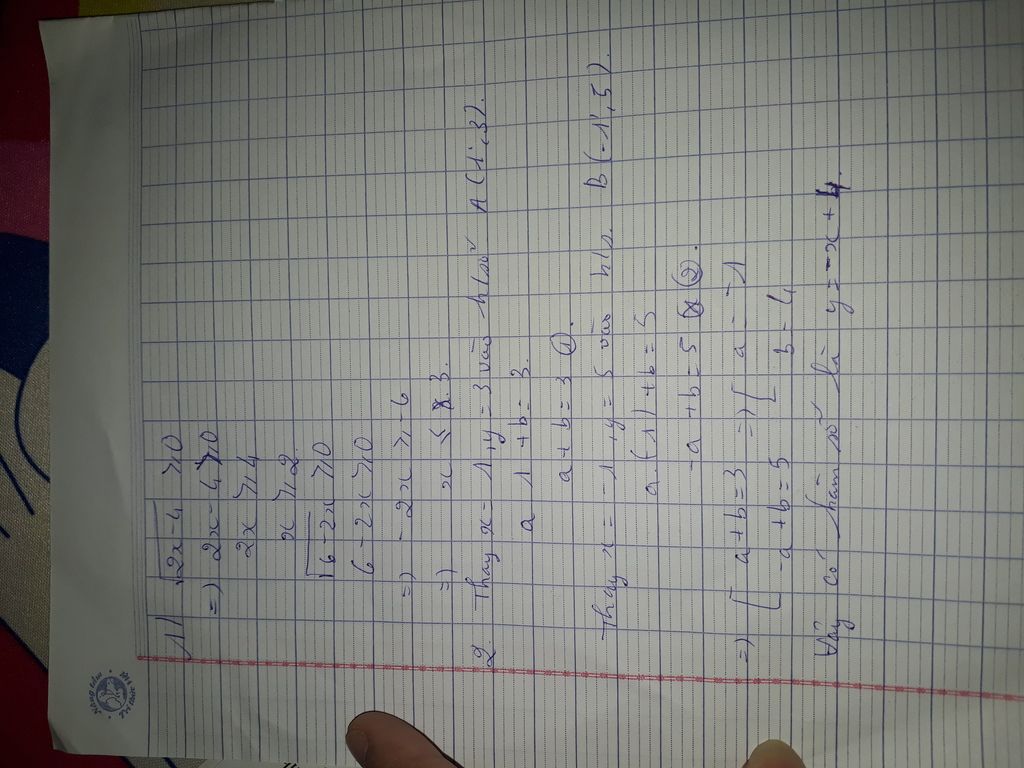 1) √2x-4 ⩾ 0
=) 2x-4 ⩾ 0
2x ⩾ 4
x ⩾ 2
√6-2x ⩾ 0
6-2x ⩾ 0
=) -2x ⩾ -6
=) x ≤ 3.
2. Thay x = 1, y = 3 vào h/số A (1; 3).
a 1 + b = 3.
a + b = 3 ①.
Thay x = -1, y = 5 vào h/s. B (-1; 5).
a. (-1) + b = 5
-a + b = 5 ②.
=) [ a + b = 3 =) [ a = -1
-a + b = 5 b = 4
Vậy có hàm số là y = -x + 4.